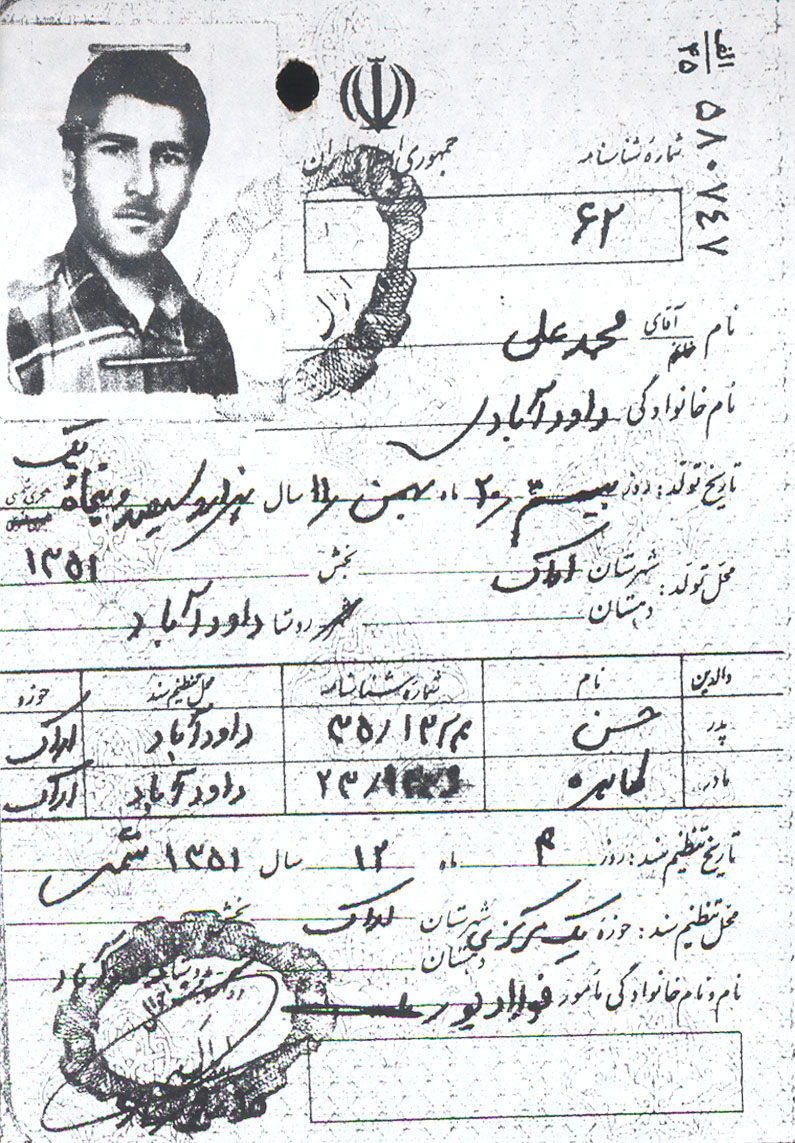 الف
۴۵
۵۸۰۸۴۷
جمهوری اسلامی ایران
شمارهٔ شناسنامه
۶۲
نام آقای خانم محمد علی
نام خانوادگی داودآبادی
تاریخ تولد: روز بیستم ۲۰ ماه بهمن ۱۱ سال هزار و سیصد و پنجاه و یک
هجری شمسی
۱۳۵۱
محل تولد: شهرستان اراک بخش
دهستان روستا داودآباد
والدین نام شمارهٔ شناسنامه محل تنظیم سند حوزه
پدر حسن داودآباد اراک
مادر طاهره داودآباد اراک
تاریخ تنظیم سند: روز ۴ ماه ۱۲ سال ۱۳۵۱ شمسی
محل تنظیم سند: حوزهٔ یک مرکزی شهرستان اراک بخش
دهستان
نام و نام خانوادگی مأمور